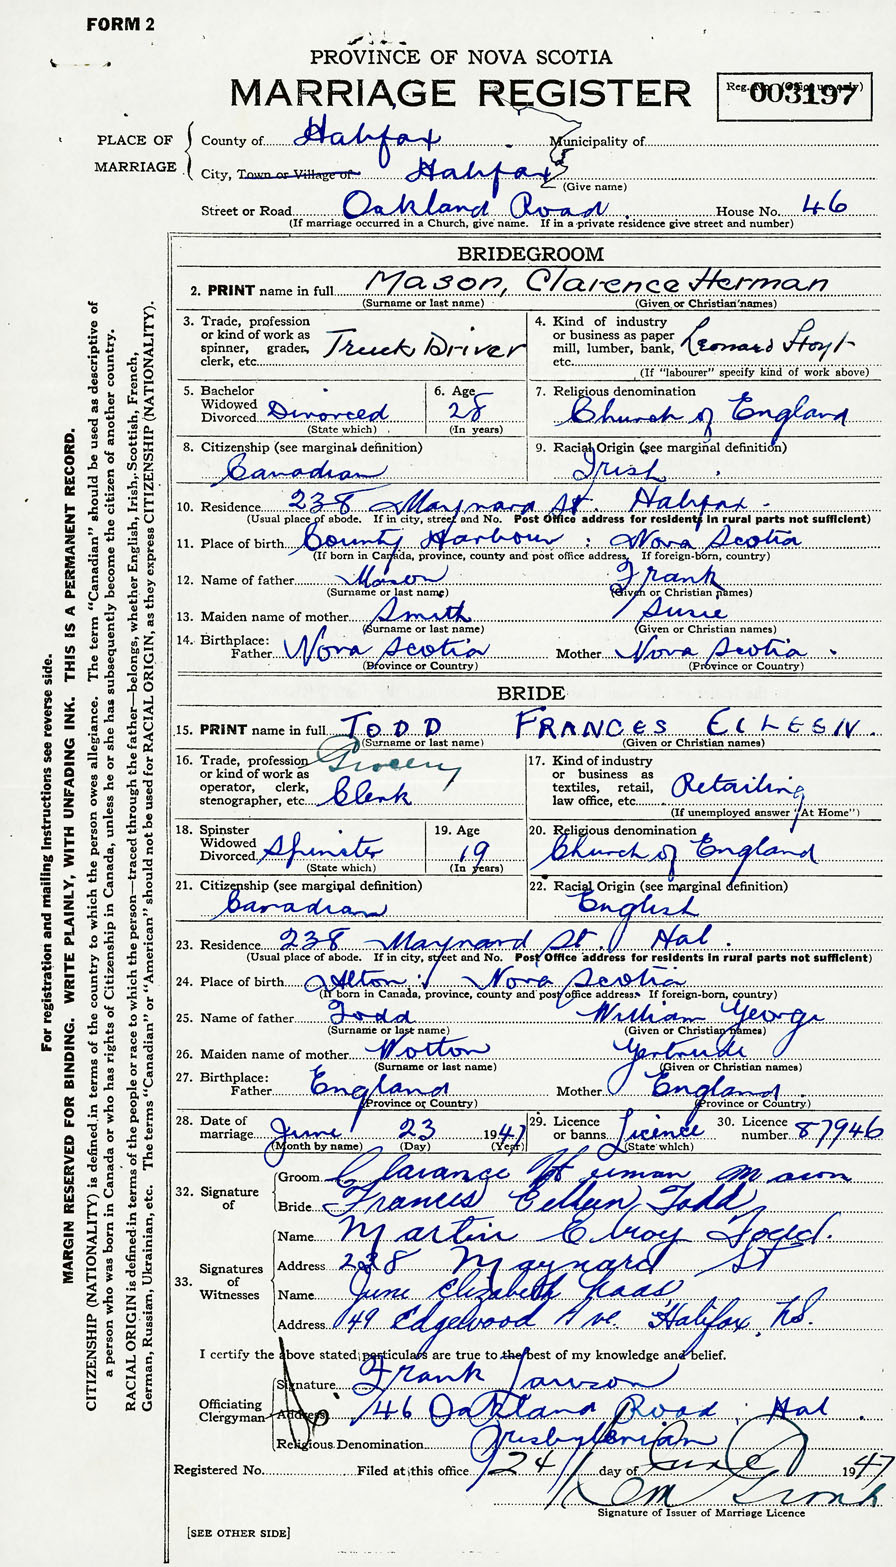 FORM 2
PROVINCE OF NOVA SCOTIA
MARRIAGE REGISTER
Reg. No. (Office use only)
003197
PLACE OF MARRIAGE
County of Halifax Municipality of
City, Town or Village of Halifax
(Give name)
Street or Road Oakland Road House No. 46
(If marriage occurred in a Church, give name. If in a private residence give street and number)
BRIDEGROOM
2. PRINT name in full Mason, Clarence Herman
(Surname or last name) (Given or Christian names)
3. Trade, profession or kind of work as spinner, grader, clerk, etc. Truck Driver
4. Kind of industry or business as paper mill, lumber, bank, etc. Leonard Hoyt
(If "labourer" specify kind of work above)
5. Bachelor Widowed Divorced Divorced
(State which)
6. Age 28
(In years)
7. Religious denomination
Church of England
8. Citizenship (see marginal definition)
Canadian
9. Racial Origin (see marginal definition)
Irish
10. Residence 238 Maynard St. Halifax
(Usual place of abode. If in city, street and No. Post Office address for residents in rural parts not sufficient)
11. Place of birth County Harbour : Nova Scotia
(If born in Canada, province, county and post office address. If foreign-born, country)
12. Name of father Mason Frank
(Surname or last name) (Given or Christian names)
13. Maiden name of mother Smith Susie
(Surname or last name) (Given or Christian names)
14. Birthplace:
Father Nova Scotia Mother Nova Scotia.
(Province or Country) (Province or Country)
BRIDE
15. PRINT name in full TODD FRANCES EILEEN.
(Surname or last name) (Given or Christian names)
16. Trade, profession or kind of work as operator, clerk, stenographer, etc. Grocery Clerk
17. Kind of industry or business as textiles, retail, law office, etc. Retailing
(If unemployed answer "At Home")
18. Spinster Widowed Divorced Spinster
(State which)
19. Age 19
(In years)
20. Religious denomination
Church of England
21. Citizenship (see marginal definition)
Canadian
22. Racial Origin (see marginal definition)
English
23. Residence 238 Maynard St. Hal.
(Usual place of abode. If in city, street and No. Post Office address for residents in rural parts not sufficient)
24. Place of birth Alton; Nova Scotia
(If born in Canada, province, county and post office address. If foreign-born, country)
25. Name of father Todd William George
(Surname or last name) (Given or Christian names)
26. Maiden name of mother Wotton Gertrude
(Surname or last name) (Given or Christian names)
27. Birthplace:
Father England Mother England
(Province or Country) (Province or Country)
28. Date of marriage June 23 1947
(Month by name) (Day) (Year)
29. Licence or banns Licence
(State which)
30. Licence number 87946
32. Signature of
Groom Clarance Herman Mason
Bride Frances Eileen Todd
33. Signatures of Witnesses
Name Martin Elroy Todd.
Address 238 Maynard St
Name June Elizabeth Haas
Address 149 Edgewood Ave. Halifax, N.S.
I certify the above stated particulars are true to the best of my knowledge and belief.
Officiating Clergyman
Signature Frank Lawson
Address 46 Oakland Road, Hal.
Religious Denomination Presbyterian
Registered No. Filed at this office 24 day of June 1947
Signature of Issuer of Marriage Licence
[SEE OTHER SIDE]
For registration and mailing instructions see reverse side.
MARGIN RESERVED FOR BINDING. WRITE PLAINLY, WITH UNFADING INK. THIS IS A PERMANENT RECORD.
CITIZENSHIP (NATIONALITY) is defined in terms of the country to which the person owes allegiance. The term "Canadian" should be used as descriptive of
a person who was born in Canada or who has rights of Citizenship in Canada, unless he or she has subsequently become the citizen of another country.
RACIAL ORIGIN is defined in terms of the people or race to which the person—traced through the father—belongs, whether English, Irish, Scottish, French,
German, Russian, Ukrainian, etc. The terms "Canadian" or "American" should not be used for RACIAL ORIGIN, as they express CITIZENSHIP (NATIONALITY).